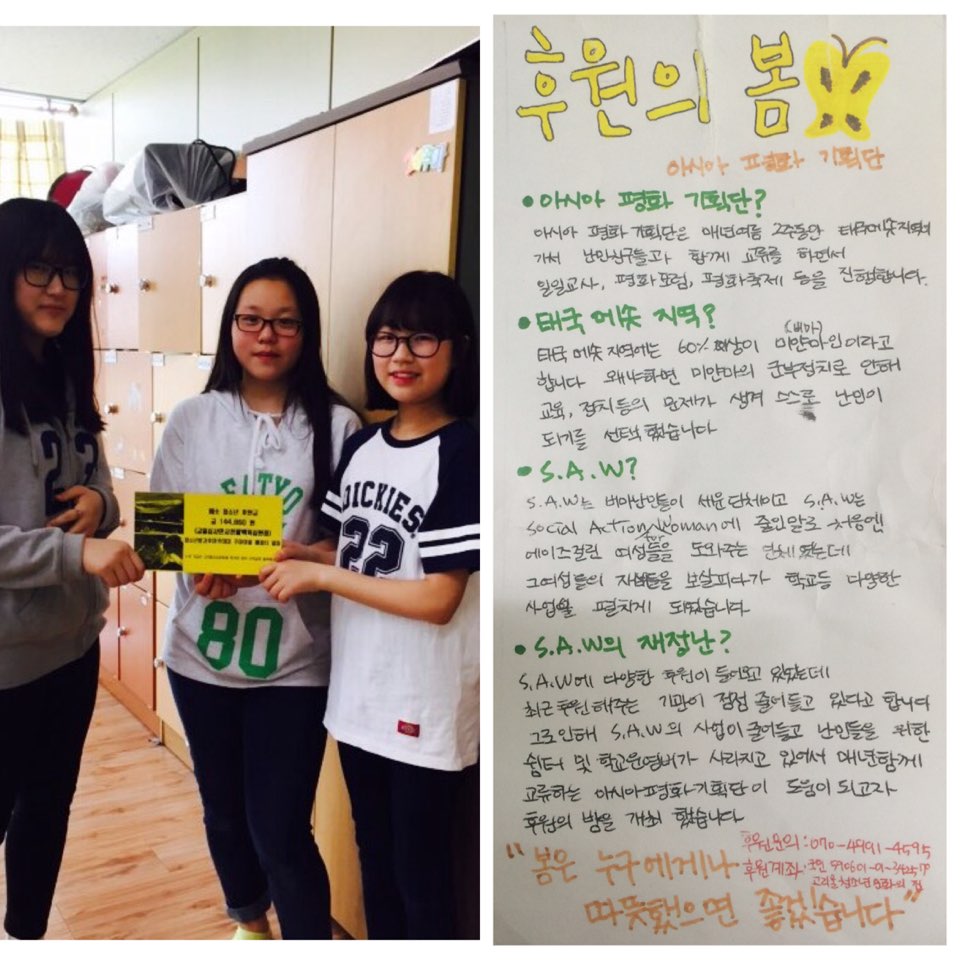 DICKIES
22
80
메솟 청소년 후원금
금 144,860 원
후원의 봄
아시아 평화 기획단
• 아시아 평화 기획단?
아시아 평화 기획단은 매년여름 2주동안 태국메솟지역에
가서 난민친구들과 함께 교류를 하면서
일일교사, 평화포럼, 평화축제 등을 진행합니다.
• 태국 메솟 지역?
(버마)
태국 메솟 지역에는 60% 이상이 미얀마인이라고
합니다 왜냐하면 미얀마의 군부정치로 인해
교육, 정치등의 문제가 생겨 스스로 난민이
되기를 선택 했습니다
• S.A.W?
S.A.W는 버마난민들이 세운단체이고 S.A.W는
Social Action for Woman에 줄인말로 처음엔
에이즈걸린 여성들을 도와주는 단체 였는데
그여성들의 자녀들을 보살피다가 학교등 다양한
사업을 펼치게 되었습니다
• S.A.W의 재정난?
S.A.W에 다양한 후원이 들어오고 있었는데
최근 후원해주는 기관이 점점 줄어들고 있다고 합니다
그로인해 S.A.W의 사업이 줄어들고 난민들을 위한
쉼터 및 학교운영비가 사라지고 있어서 매년함께
교류하는 아시아평화기획단이 도움이 되고자
후원의 밤을 개최 했습니다
후원문의 : 070-4991-4595
후원계좌 : 국민
고리울청소년문화의 집
"봄은 누구에게나
따뜻했으면 좋겠습니다"